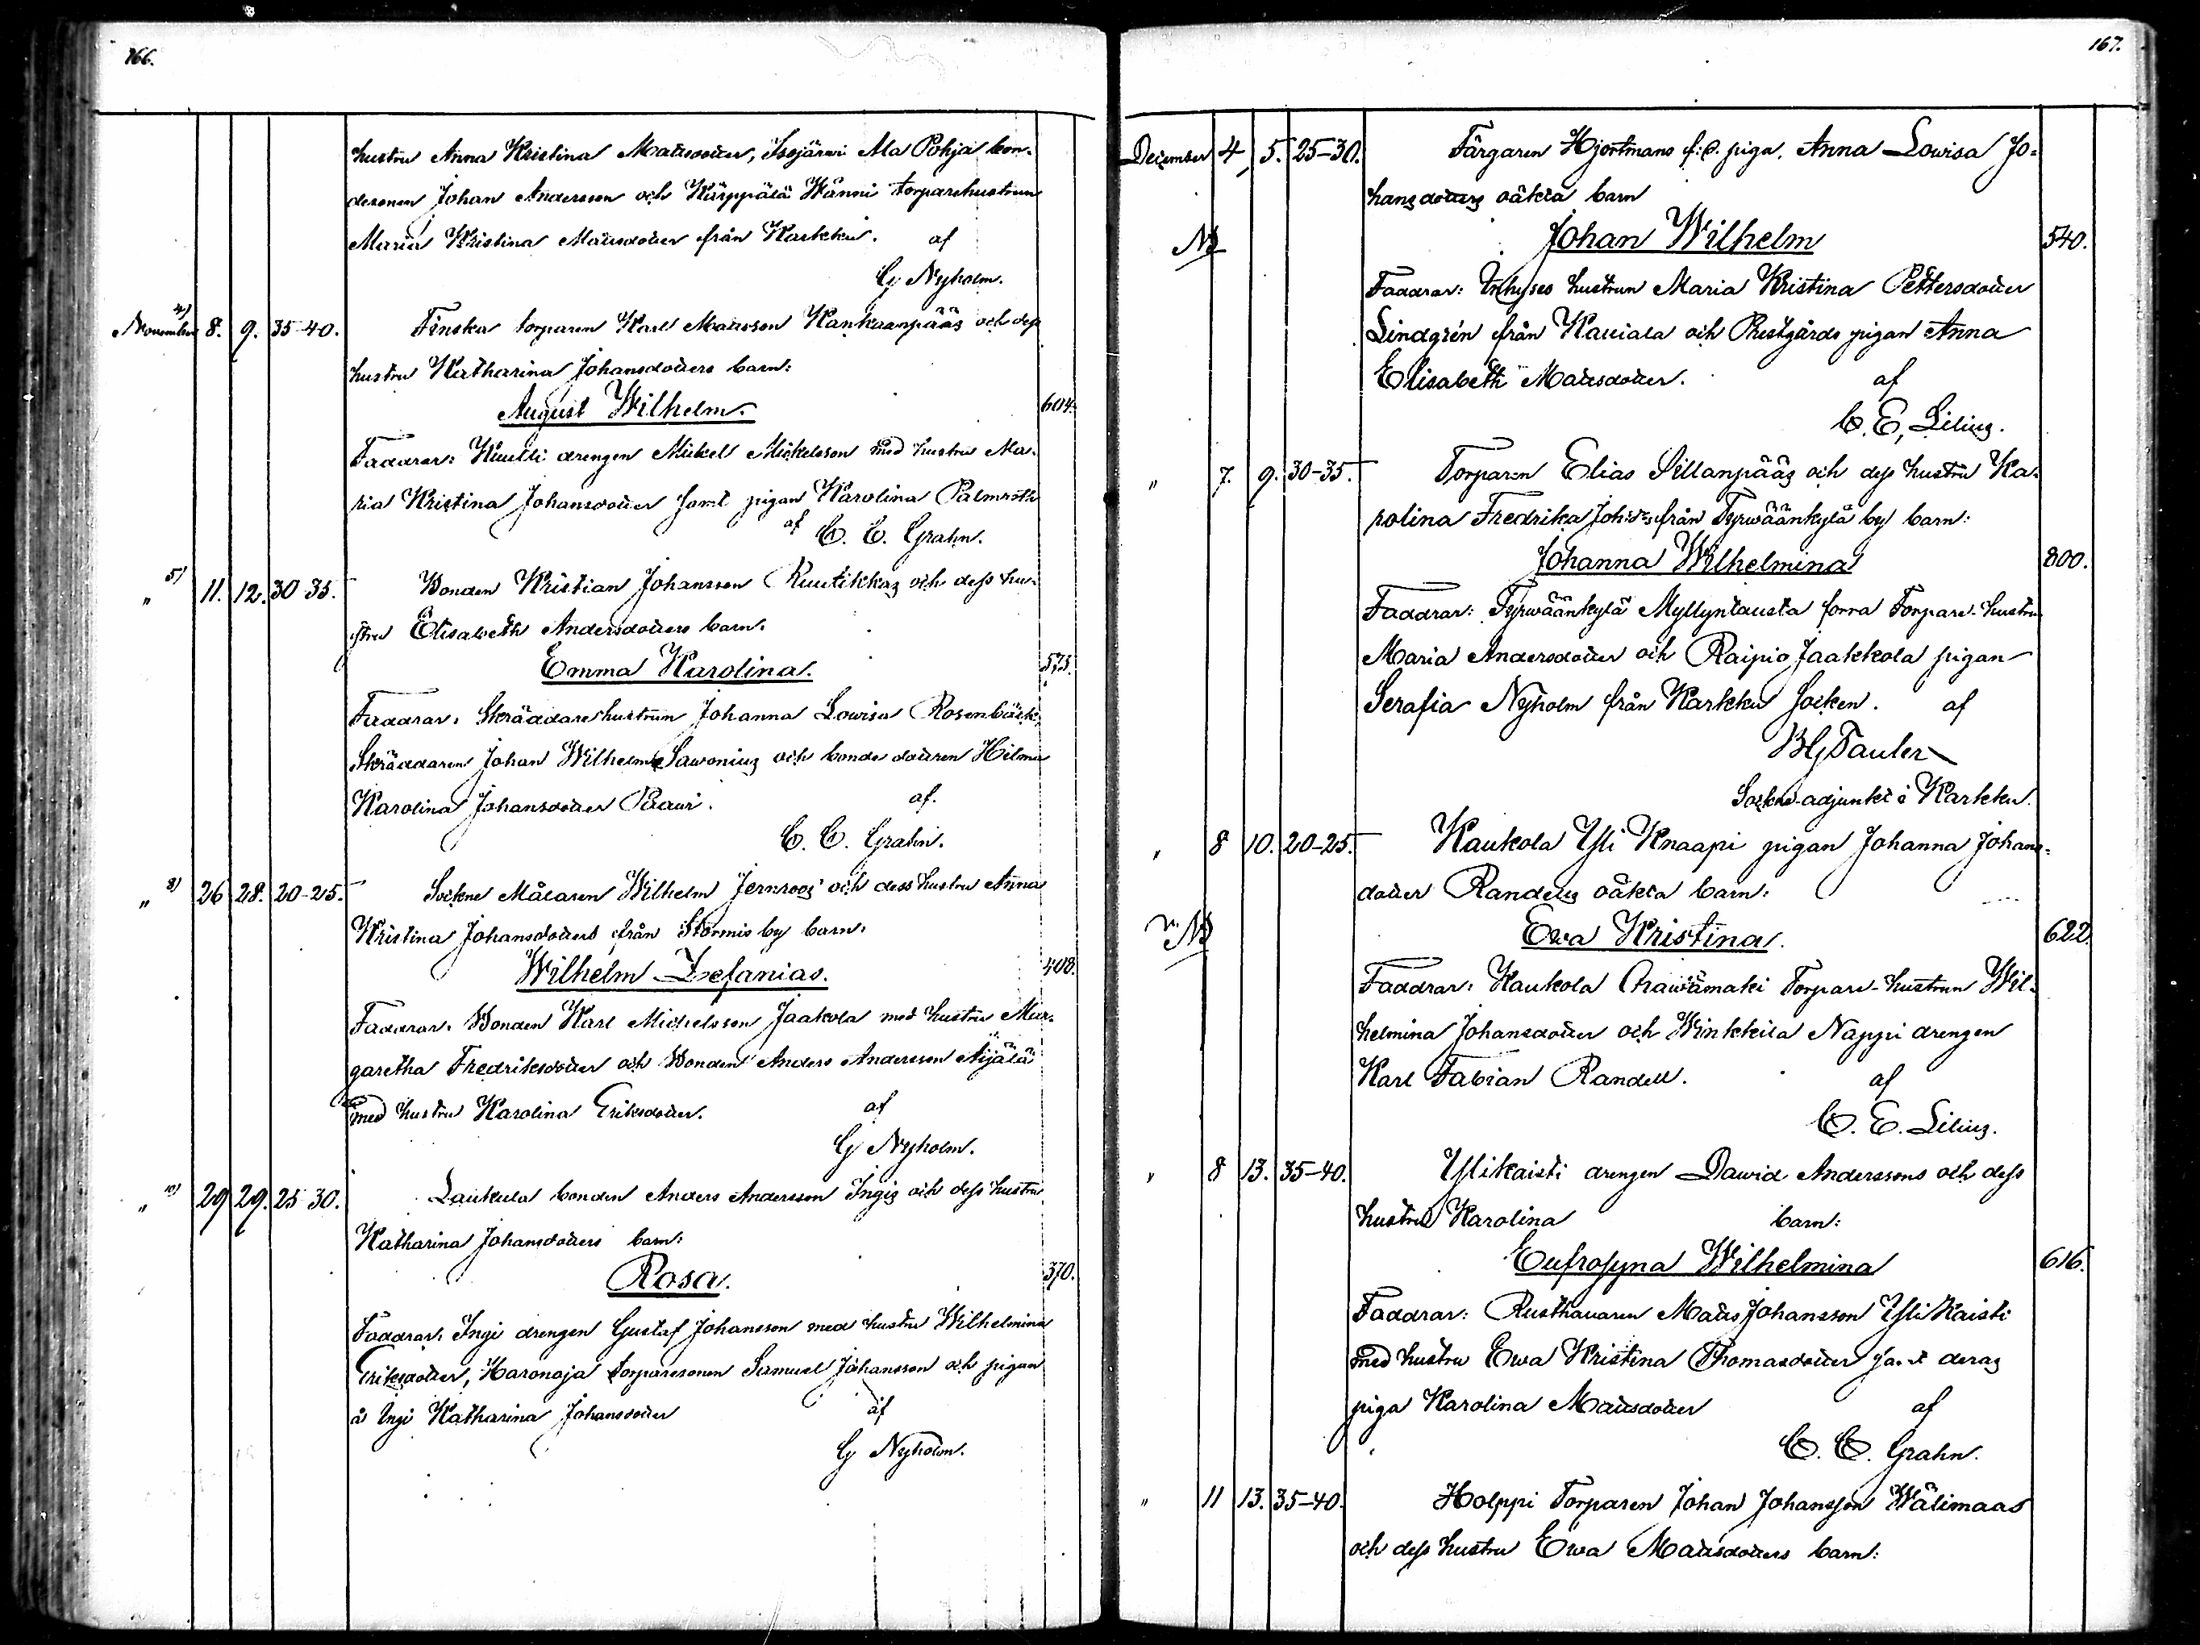 166.
hustru Anna Kristina Mattsdotter, Isojärwi Ala Pohja bon-
desonen Johan Andersson och Kärppälä Wänni torparehustrun
Maria Kristina Mattsdotter från Karkku. af
G Nyholm.
4) November 8. 9. 35-40. Finska torparen Karl Mattsson Kankaanpääs och dess
hustru Katharina Johansdotters barn:
August Wilhelm. 604.
Faddrar: drengen Mickel Mickelsson med hustru Ma-
ria Kristina Johansdotter samt pigan Karolina Palmroth
af C. E. Grahn.
5) " 11. 12. 30-35. Bonden Kristian Johansson Ruutikkas och dess hu-
stru Elisabeth Andersdotters barn.
Emma Karolina. 573.
Faddrar: Skräddarehustrun Johanna Lowisa Rosenbäck,
Skräddaren Johan Wilhelm Sawonius och bonde dottren Hilma
Karolina Johansdotter Paawi. af.
C. E. Grahn.
8) " 26 28. 20-25. Sockne Målaren Wilhelm Jernroos och dess hustru Anna
Kristina Johansdotters från Stormis by barn.
Wilhelm Zefanias. 408.
Faddrar: Bonden Karl Michelsson Jaakola med hustru Mar-
garetha Fredriksdotter och Bonden Anders Andersson Äijälä
med hustru Karolina Eriksdotter. af
G Nyholm.
10) " 29 29. 25-30. Laukula bonden Anders Andersson Ingis och dess hustru
Katharina Johansdotters barn:
Rosa. 370.
Faddrar: Ingi drengen Gustaf Johansson med hustru Wilhelmina
Eriksdotter, Haronoja torparesonen Samuel Johansson och pigan
å Ingi Katharina Johansdotter af
G Nyholm.
167.
December 4, 5. 25-30. Färgaren Hjortmans f: d. piga, Anna Lowisa Jo-
hansdotters oäkta barn
NB Johan Wilhelm 540.
Faddrar: Inhyses hustrun Maria Kristina Pettersdotter
Lindgrén från Kauiala och Prestgårds pigan Anna
Elisabeth Mattsdotter. af
C. E. Lilius.
" 7. 9. 30-35. Torparen Elias Sillanpääs och dess hustru Ka-
rolina Fredrika Joh:ds från Tyrwäänkylä by barn:
Johanna Wilhelmina 800.
Faddrar: Tyrwäänkylä Myllyntausta forra Torpare-hustru
Maria Andersdotter och Raipio Jaakkola pigan
Serafia Nyholm från Karkku Socken. af
Tauler
Sockne-adjunkt i Karkku.
" 8 10. 20-25. Kaukola Yli Knaapi pigan Johanna Johans-
dotter Randells oäkta barn:
NB Ewa Kristina. 622.
Faddrar: Kaukola Torpare-hustrun Wil-
helmina Johansdotter och Winkkila Nappi drengen
Karl Fabian Randell. af
C. E. Lilius.
" 8 13. 35-40. Ylikaisti drengen Dawid Anderssons och dess
hustru Karolina barn:
Eufrosyna Wilhelmina 616.
Faddrar: Rusthållaren Matts Johansson Yli Kaisti
med hustru Ewa Kristina Thomasdotter samt deras
piga Karolina Mattsdotter af
C. E. Grahn.
" 11 13. 35-40. Holppi Torparen Johan Johansson Wälimaas
och dess hustru Ewa Mattsdotters barn: